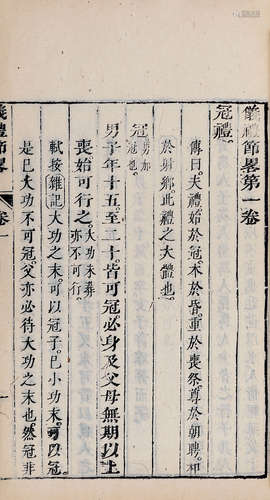 儀禮節畧第一卷
冠禮。
傳曰。夫禮始於冠。本於昏。重於喪祭。尊於朝聘。和
於射鄉。此禮之大體也。
冠
男子年十五。至二十。皆可冠。必身及父母無期以上
喪。始可行之。大功未葬亦不可行
軾按雜記。大功之末。可以冠子。己小功末。可以冠
是己大功不可冠。父亦必待大功之末也。然冠非
儀禮節畧 卷一